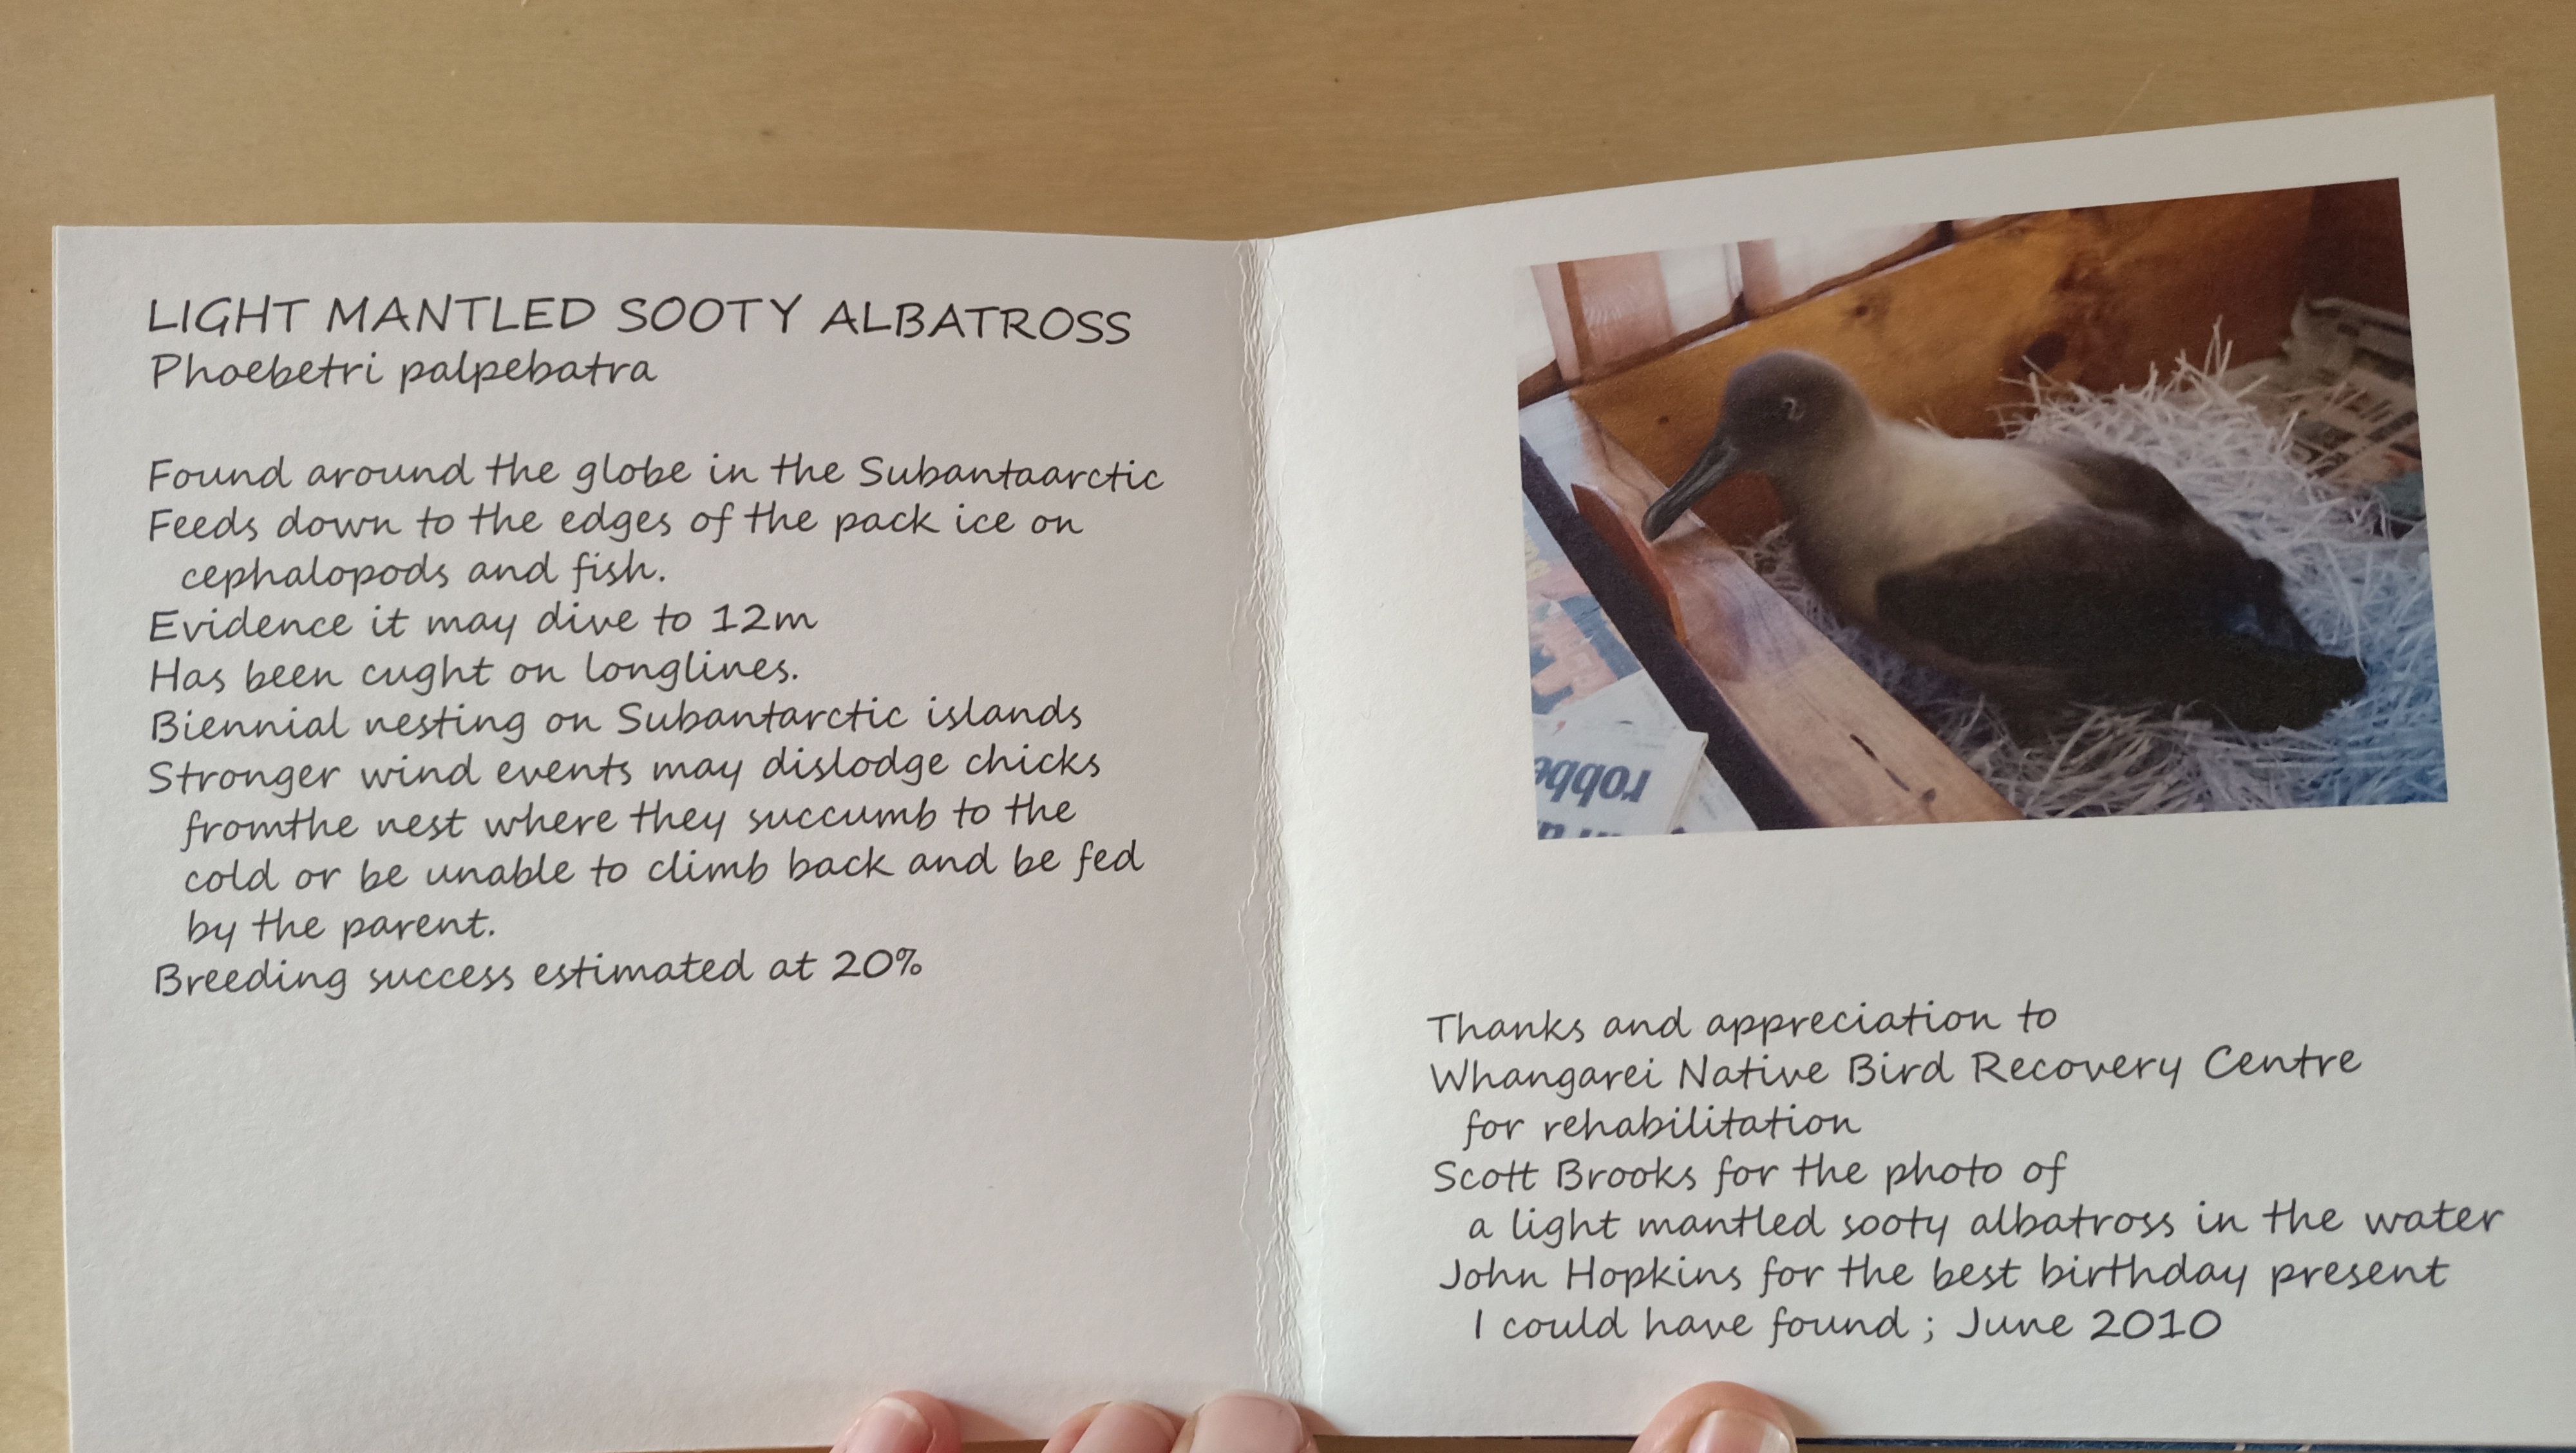 LIGHT MANTLED SOOTY ALBATROSS
Phoebetri palpebatra
Found around the globe in the Subantaarctic
Feeds down to the edges of the pack ice on
cephalopods and fish.
Evidence it may dive to 12m
Has been cught on longlines.
Biennial nesting on Subantarctic islands
Stronger wind events may dislodge chicks
fromthe nest where they succumb to the
cold or be unable to climb back and be fed
by the parent.
Breeding success estimated at 20%
robbe
Thanks and appreciation to
Whangarei Native Bird Recovery Centre
for rehabilitation
Scott Brooks for the photo of
a light mantled sooty albatross in the water
John Hopkins for the best birthday present
I could have found ; June 2010